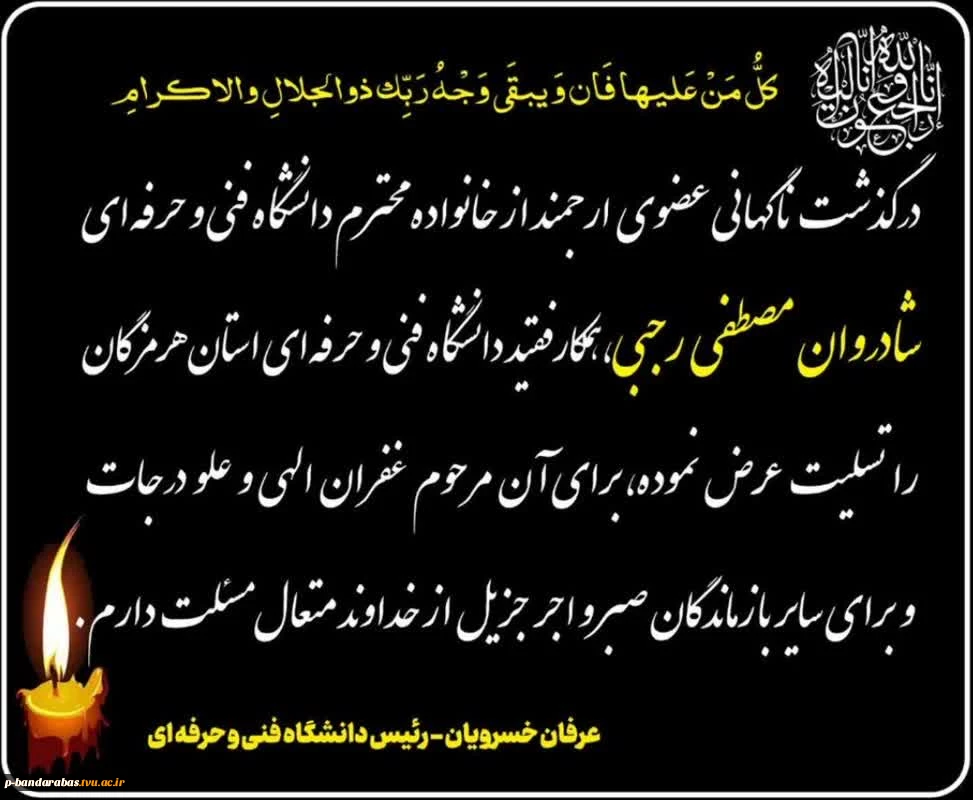 إنا لله وإنا إليه راجعون
كُلُّ مَنْ عَلیها فَان وَ یبقَی وَجْهُ رَبِّكَ ذوالجلالِ والاکرامِ
درگذشت ناگهانی عضوی ارجمند از خانواده محترم دانشگاه فنی و حرفه ای
شادروان مصطفی رجبی، همکار فقید دانشگاه فنی و حرفه ای استان هرمزگان
را تسلیت عرض نموده، برای آن مرحوم غفران الهی و علو درجات
و برای سایر بازماندگان صبر و اجر جزیل از خداوند متعال مسئلت دارم.
عرفان خسرویان - رئیس دانشگاه فنی و حرفه ای
p-bandarabas.tvu.ac.ir